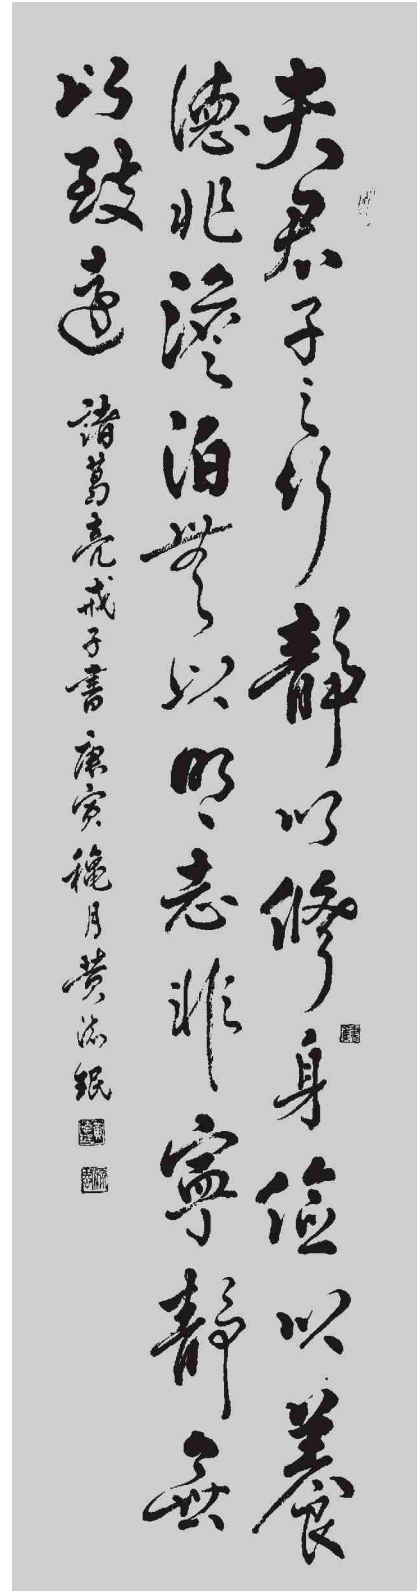 夫君子之行靜以修身儉以養
德非澹泊無以明志非寧靜無
以致遠
諸葛亮戒子書 庚寅穐月黃添銀